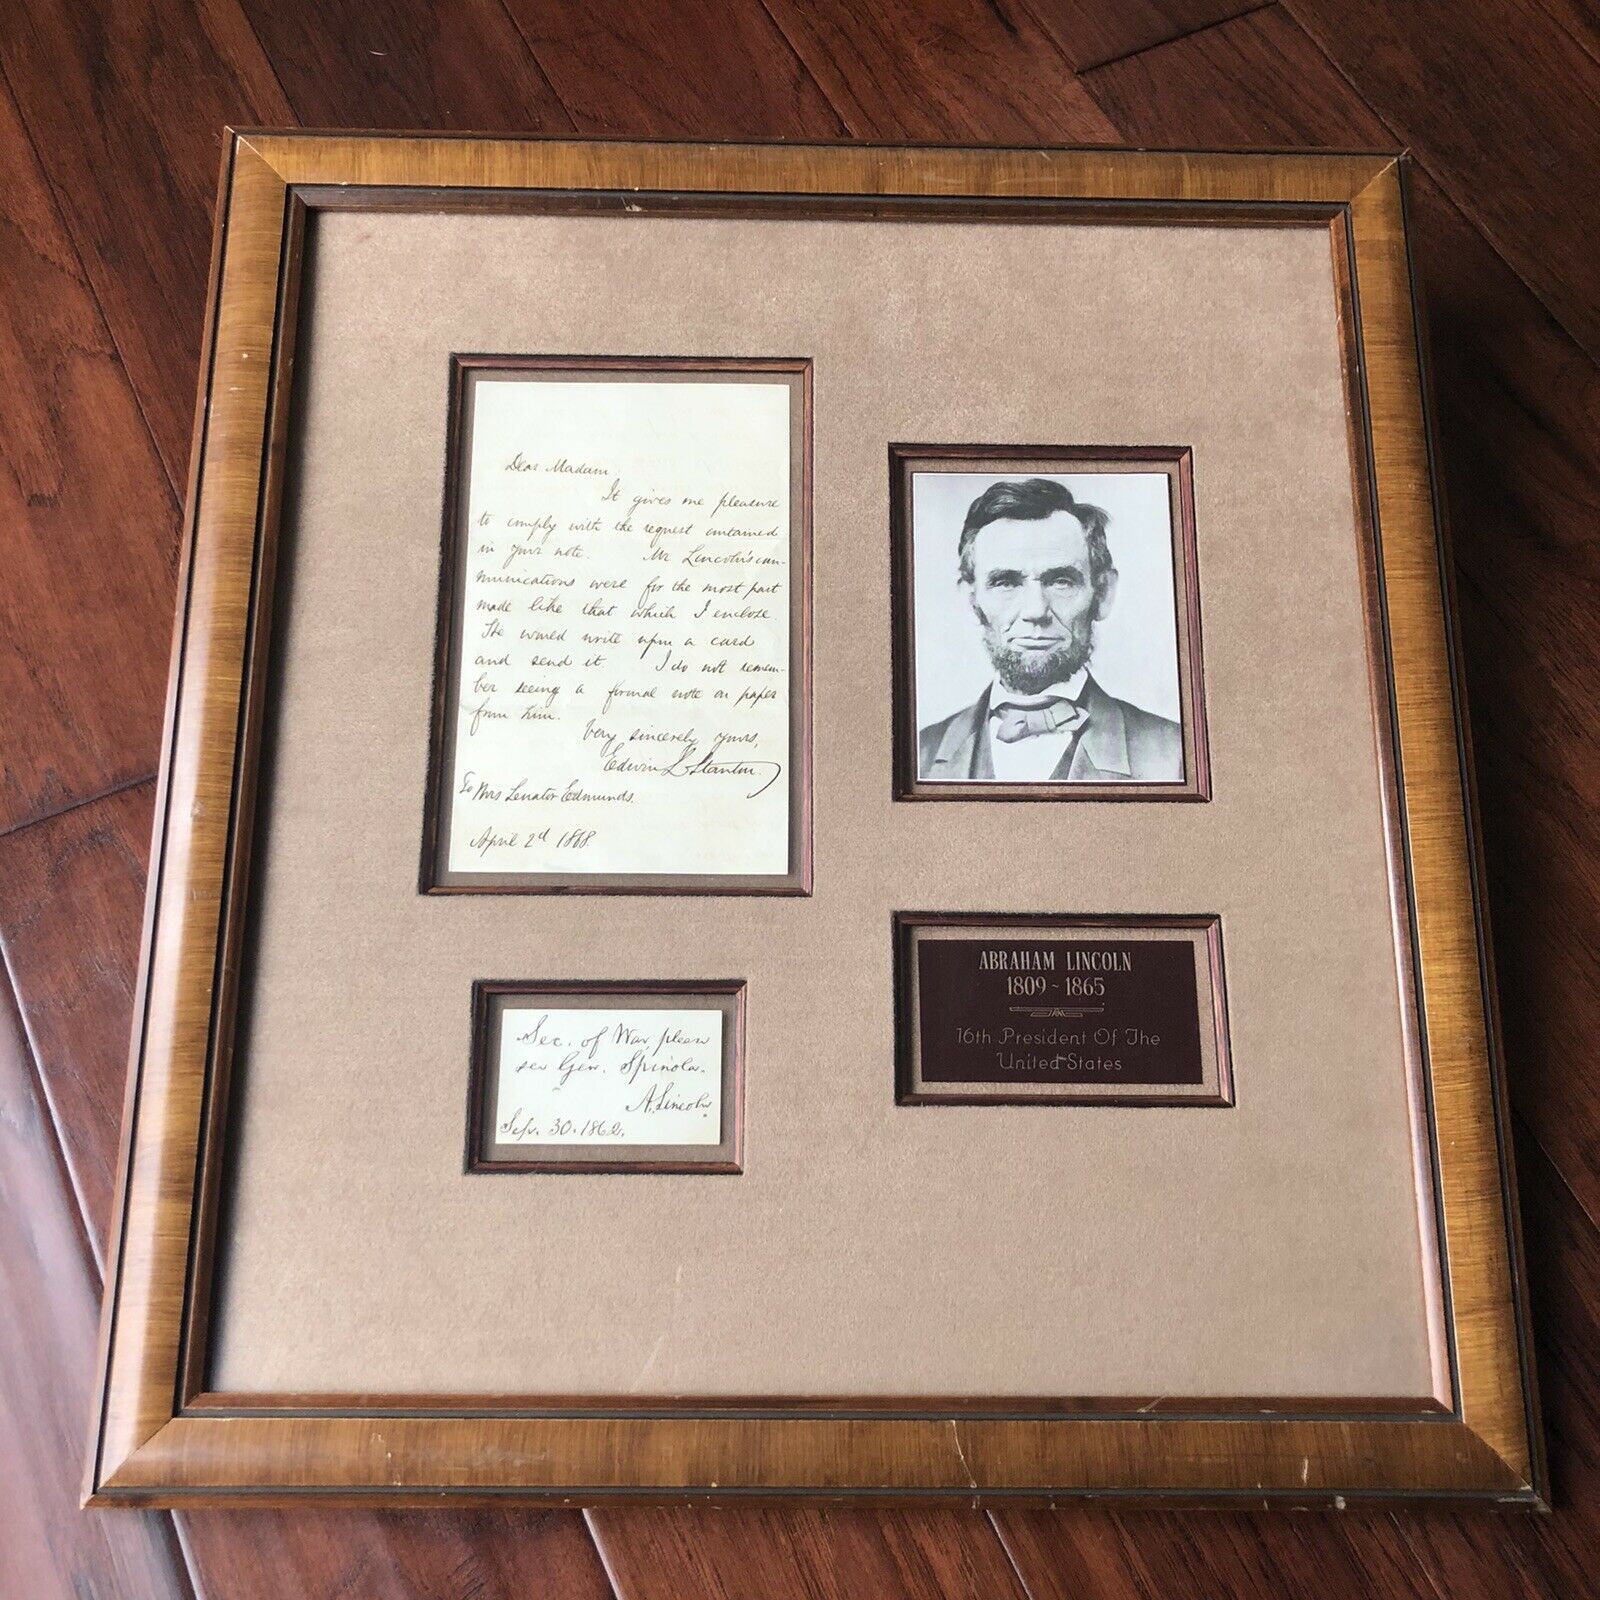 Dear Madam:
It gives me pleasure
to comply with the request contained
in your note. Mr Lincoln's com-
munications were for the most part
made like that which I enclose.
He would write upon a card
and send it. I do not remem-
ber seeing a formal note on paper
from him.
Very sincerely yours,
Edwin L Stanton.
To Mrs Senator Edmunds.
April 2d 1868.
Sec. of War, please
see Gen. Spinola.
A. Lincoln
Sep. 30. 1862.
ABRAHAM LINCOLN
1809 ~ 1865
16th President Of The
United States